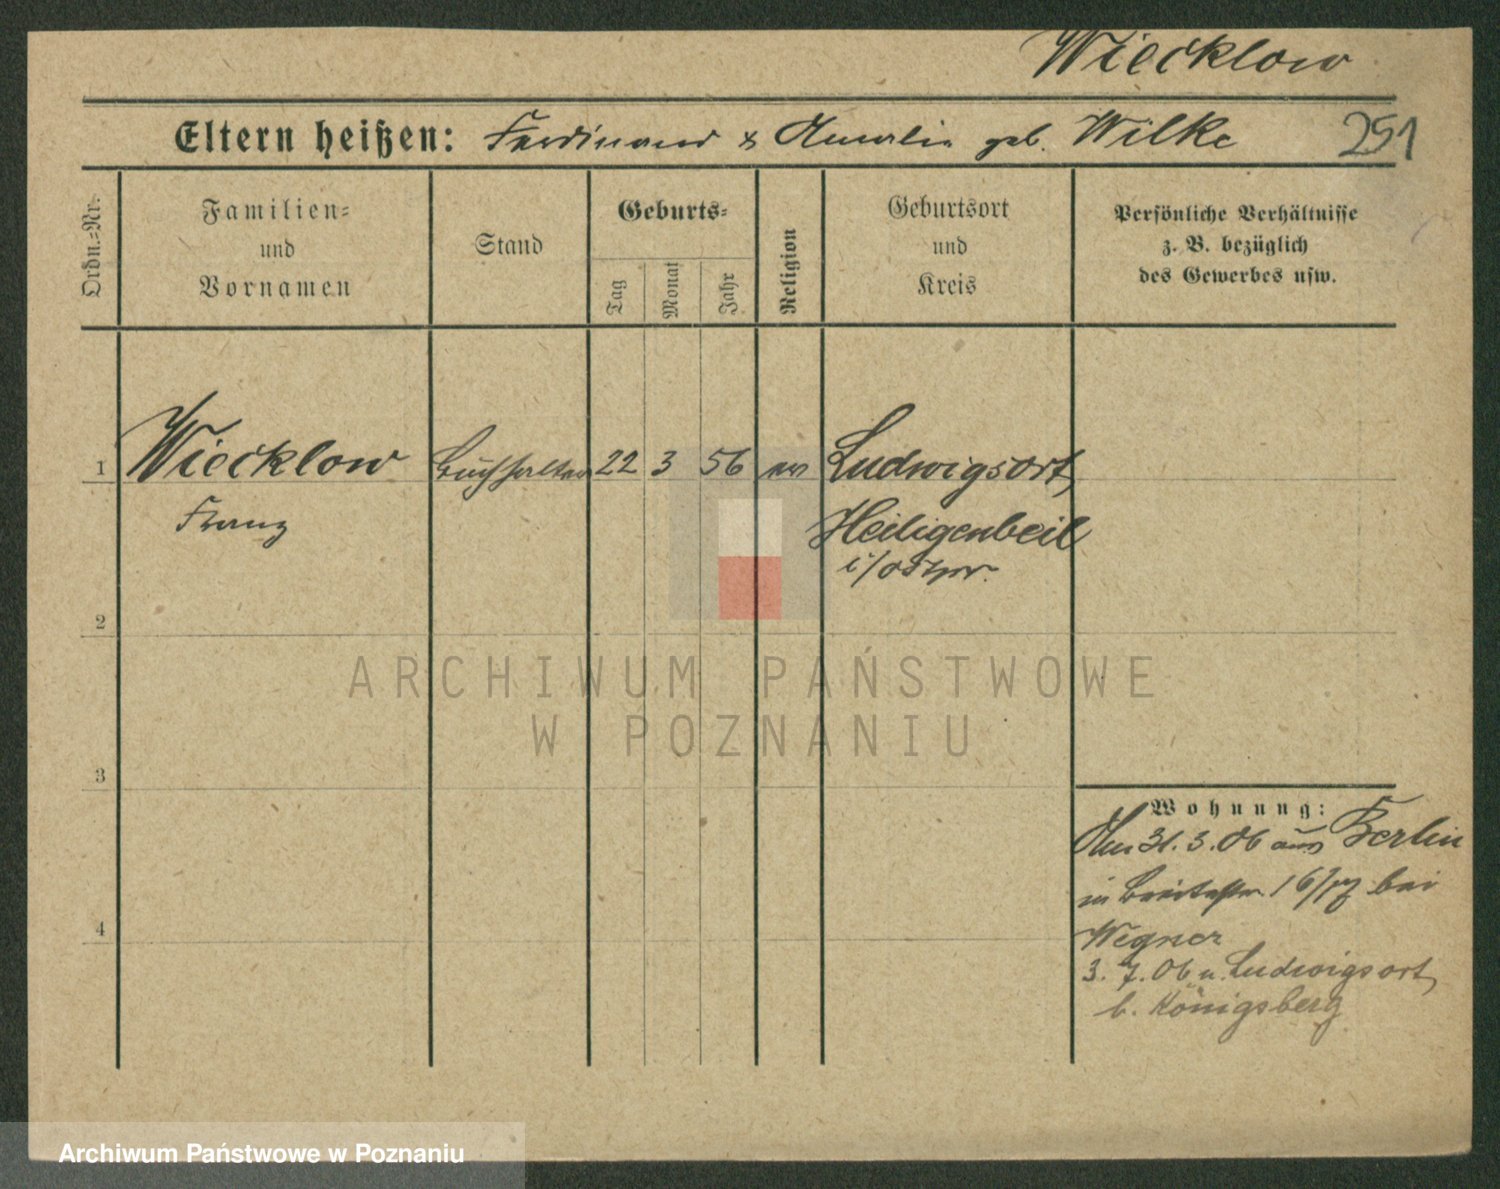 Wiecklow
Eltern heißen: Ferdinand & Amalie geb. Wilke
251
Ordn.=Nr.
Familien=
und
Vornamen
Stand
Geburts=
Tag
Monat
Jahr
Religion
Geburtsort
und
Kreis
Persönliche Verhältnisse
z. B. bezüglich
des Gewerbes usw.
1 Wiecklow Buchhalter 22 3 56 ev Ludwigsort,
Franz
Heiligenbeil
i/Ostpr.
2
3
4
Wohnung:
Am 31.3.06 aus Berlin
in Breitestr. 16 bei
Wegner
3.7.06 n. Ludwigsort,
b. Königsberg
ARCHIWUM PAŃSTWOWE
W POZNANIU
Archiwum Państwowe w Poznaniu